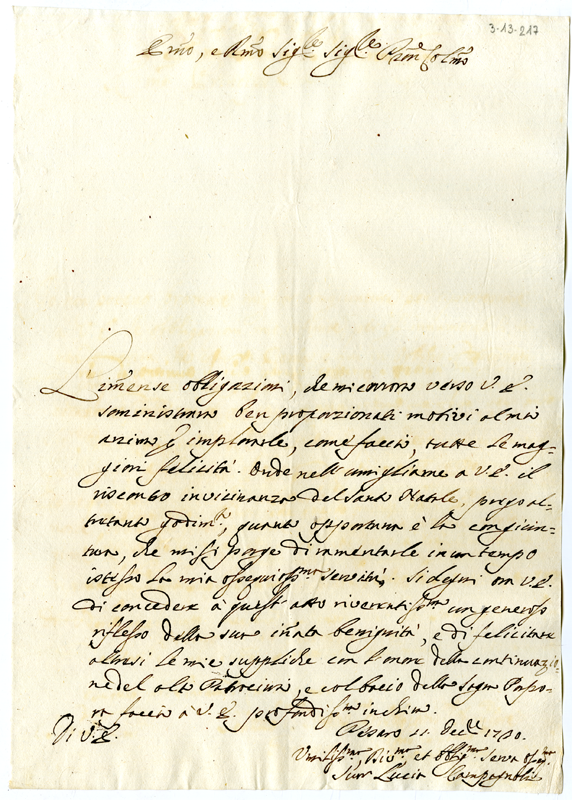 3-13-217
Emo, e Rmo Sigre Sigre Pron Colmo
L'imense obligazioni, che mi corron verso V. E.
somministran ben proporzionati motivi al mio
animo p implorarle, come faccio, tutte le mag=
giori felicità. Onde nell'umigliarne a V. E. il
riscontro in vicinanza del Santo Natale, prego al=
trettanto godimto, quanto opportuna è la congiun=
tura, che mi si porge di ramentarle in un tempo
istesso la mia ossequiosma servitù. Si degni on V. E.
di concedere à quest'atto riverentissmo un generoso
riflesso della sua innata benignità, e di felicitare
altresì le mie suppliche con l'onore della continuazio=
ne del alto Patrocinio, e col bacio della Sagra Porpo=
ra faccio à V. E. profondissma inchino.
Di V. E.
Pesaro 11 Decre 1700.
Umilissma, Divma et Obblma Serva Ossma
Suor Lucia Campagnoli